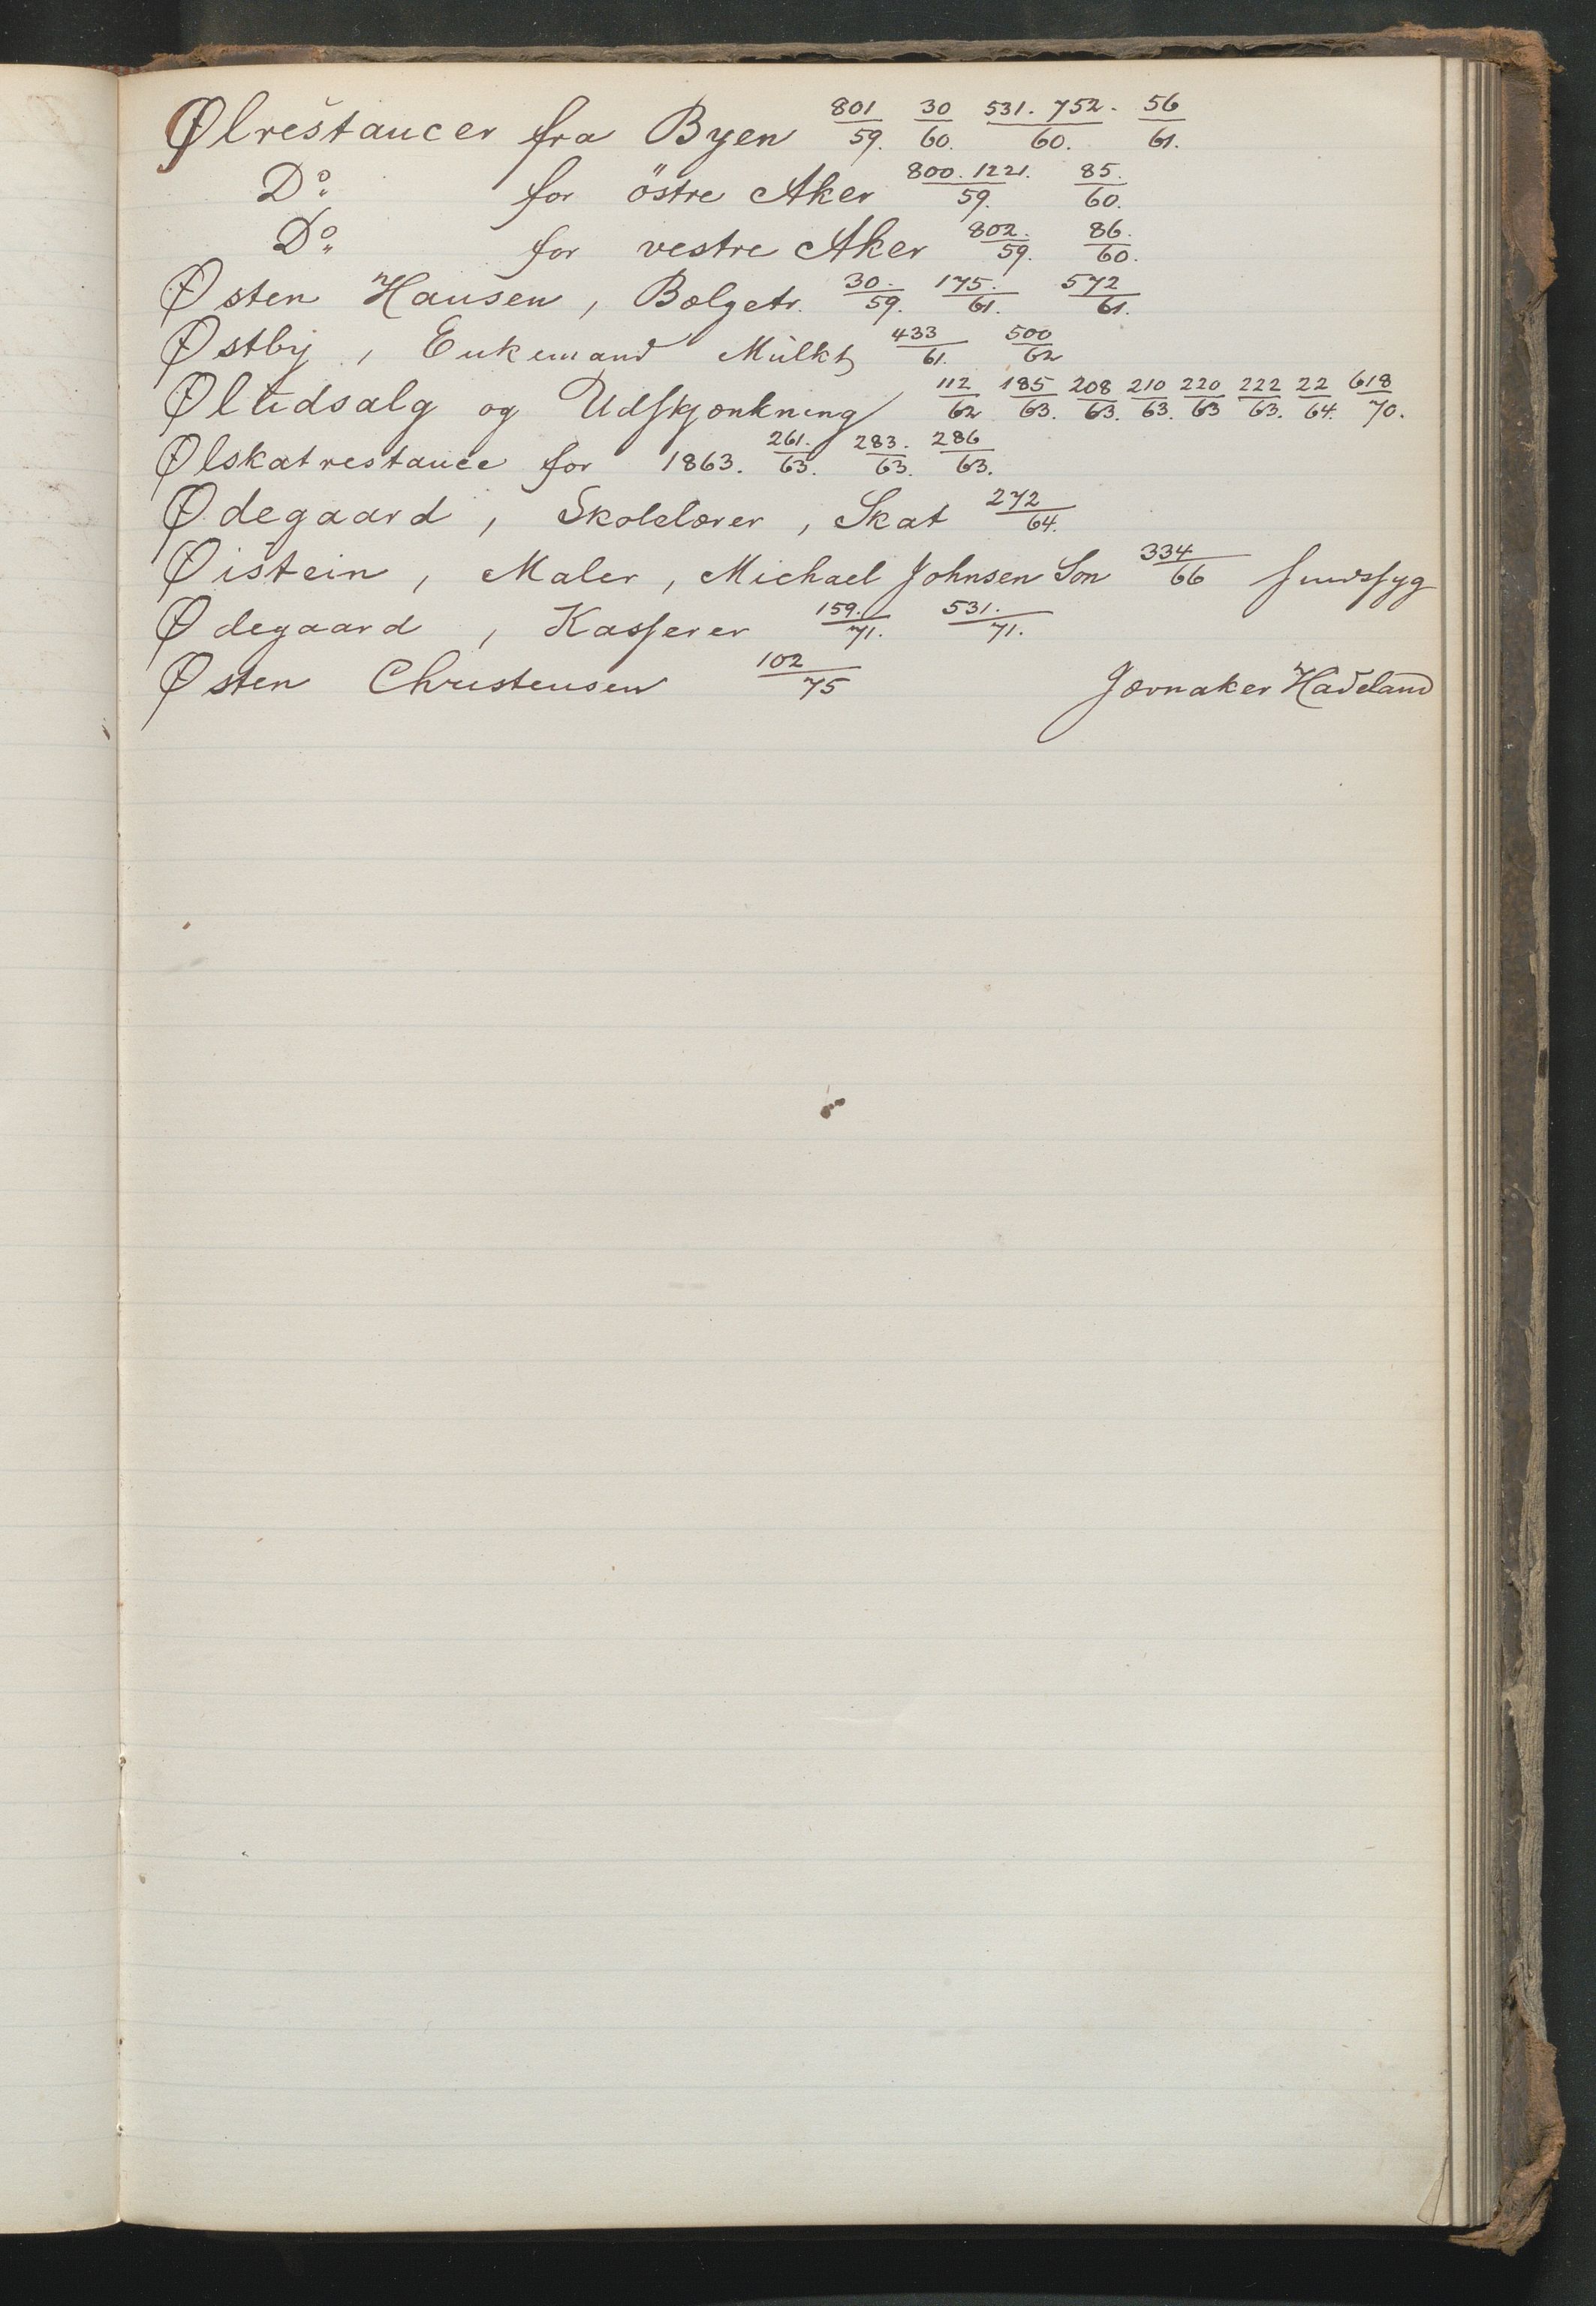 Ølrestancer fra Byen 801/59. 30/60. 531. 752./60. 56/61.
Do. for østre Aker 800. 1221./59. 85./60.
Do. for vestre Aker 802./59. 86./60.
Østen Hansen, Bælgetr. 30./59. 175./61. 572/61.
Østby, Enkemand Mulkt 433/61. 500/62
Øludsalg og Udskjænkning 112/62 185/63. 208/63. 210/63. 220/63 222/63. 22/64. 618/70.
Ølskatrestance for 1863. 261./63. 283./63. 286/63.
Ødegaard, Skolelærer, Skat 272/64.
Øistein, Maler, Michael Johnsen Søn 334/66 sindssyg
Ødegaard, Kasserer 159./71. 531./71.
Østen Christensen 102/75 Jævnaker Hadeland